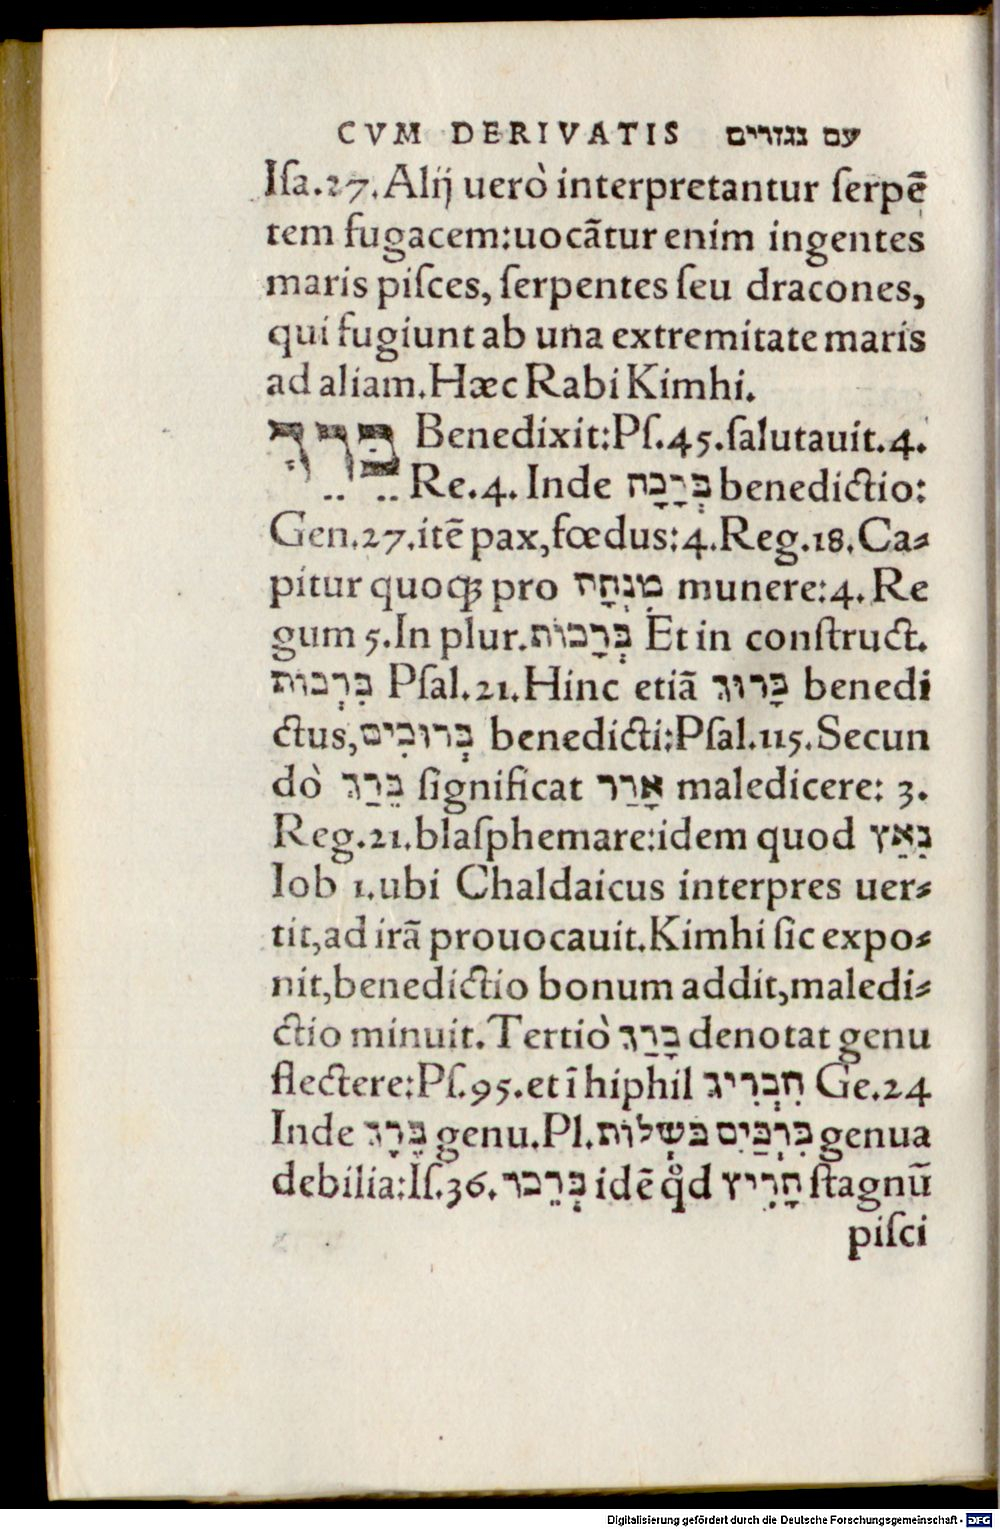 CVM DERIVATIS עם נגזרים
Iſa.27.Alij uerò interpretantur ſerpē
tem fugacem:uocãtur enim ingentes
maris piſces, ſerpentes ſeu dracones,
qui fugiunt ab una extremitate maris
ad aliam.Hæc Rabi Kimhi.
Benedixit:Pſ.45.ſalutauit.4.
Re.4. Inde בְּרָבָה benedictio:
Gen.27.itē pax,fœdus:4.Reg.18.Ca⸗
pitur quoqꝫ pro מִנְחָה munere:4.Re
gum 5.In plur.בְּרָכוֹת Et in conſtruct.
בִּרְכוֹת Pſal.21.Hinc etiã בָּרוּךְ benedi
ctus,בְּרוּכִים benedicti:Pſal.115.Secun
dò בֵּרַךְ ſignificat אָרַר maledicere: 3.
Reg.21.blaſphemare:idem quod נִאֵץ
Iob 1.ubi Chaldaicus interpres uer⸗
tit,ad irã prouocauit.Kimhi ſic expo⸗
nit,benedictio bonum addit,maledi⸗
ctio minuit.Tertiò בָּרַךְ denotat genu
flectere:Pſ.95.et ī hiphil הִבְרִיךְ Ge.24
Inde בֶּרֶךְ genu.Pl.בִּרְכַּיִם כּשְׁלוֹת genua
debilia:Iſ.36. idē qd חָרִיץ ſtagnū
piſci
Digitalisierung gefördert durch die Deutsche Forschungsgemeinschaft - DFG